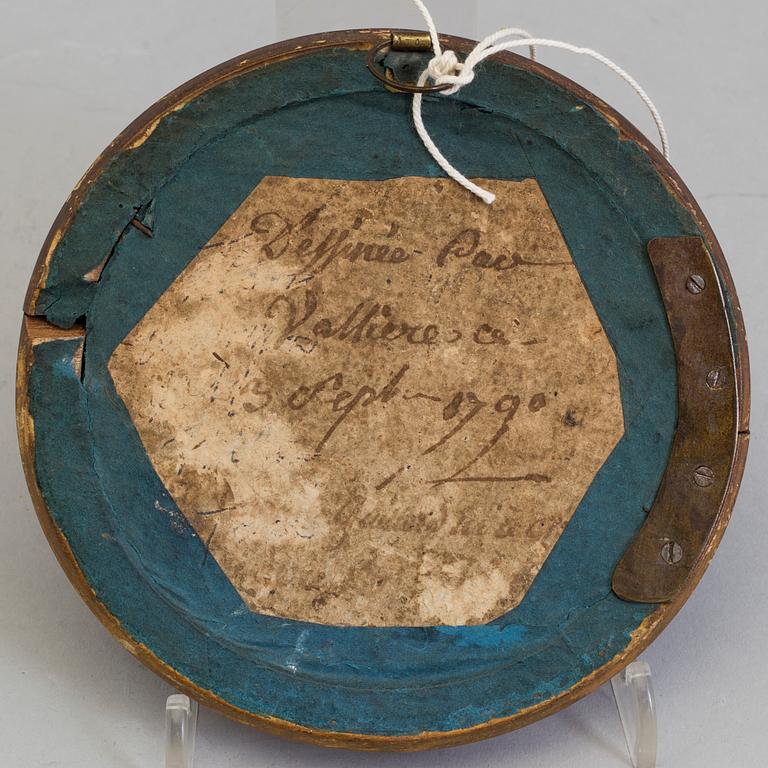 Dessinée Par
Valliere ce
3 Sept 1790